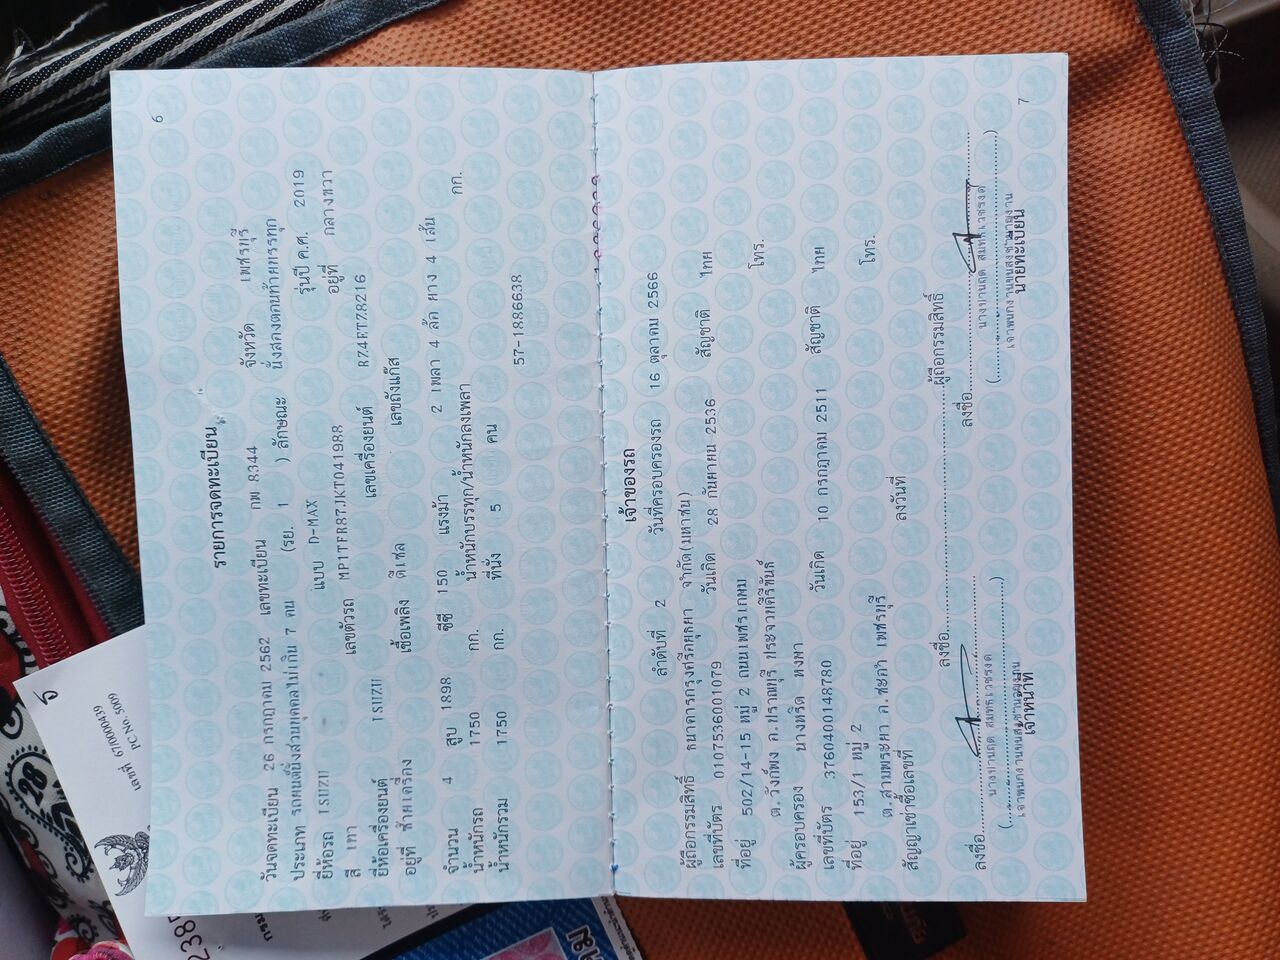 6
รายการจดทะเบียน
วันจดทะเบียน 26 กรกฎาคม 2562 เลขทะเบียน กพ 8344 จังหวัด เพชรบุรี
ประเภท รถยนต์นั่งส่วนบุคคลไม่เกิน 7 คน (รย. 1 ) ลักษณะ นั่งสองตอนท้ายบรรทุก
ยี่ห้อรถ ISUZU แบบ D-MAX รุ่นปี ค.ศ. 2019
สี เทา เลขตัวรถ MP1TFR87JKT041988 อยู่ที่ กลางขวา
ยี่ห้อเครื่องยนต์ ISUZU เลขเครื่องยนต์ RZ4ETZ8216
อยู่ที่ ซ้ายเครื่อง เชื้อเพลิง ดีเซล เลขถังแก๊ส
จำนวน 4 สูบ 1898 ซีซี 150 แรงม้า 2 เพลา 4 ล้อ ยาง 4 เส้น
น้ำหนักรถ 1750 กก. น้ำหนักบรรทุก/น้ำหนักลงเพลา กก.
น้ำหนักรวม 1750 กก. ที่นั่ง 5 คน
57-1886638
เจ้าของรถ
ลำดับที่ 2 วันที่ครอบครองรถ 16 ตุลาคม 2566
ผู้ถือกรรมสิทธิ์ ธนาคารกรุงศรีอยุธยา จำกัด(มหาชน)
เลขที่บัตร 0107536001079 วันเกิด 28 กันยายน 2536 สัญชาติ ไทย
ที่อยู่ 502/14-15 หมู่ 2 ถนนเพชรเกษม โทร.
ต.วังก์พง อ.ปราณบุรี ประจวบคีรีขันธ์
ผู้ครอบครอง นางหริด หงษา
เลขที่บัตร 3760400148780 วันเกิด 10 กรกฎาคม 2511 สัญชาติ ไทย
ที่อยู่ 153/1 หมู่ 2 โทร.
ต.สามพระยา อ.ชะอำ เพชรบุรี
สัญญาเช่าซื้อเลขที่ ลงวันที่
ลงชื่อ ผู้ถือกรรมสิทธิ์
ลงชื่อ ลงชื่อ
เจ้าพนักงานขนส่งชำนาญงาน เจ้าพนักงานขนส่งชำนาญงาน
เจ้าหน้าที่ นายทะเบียน
7
เลขที่ 670000439
PC No. 5009
28